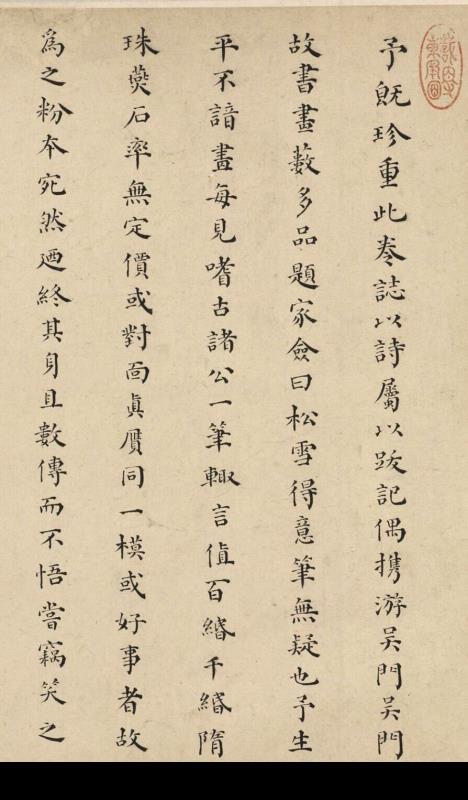 予既珍重此卷誌以詩屬以跋記偶携游吴門吴門
故書畫藪多品題家僉曰松雪得意筆無疑也予生
平不諳畫每見嗜古諸公一筆輙言値百緡千緡隋
珠燕石率無定價或對面眞贋同一模或好事者故
爲之粉本宛然廼終其身且數傳而不悟嘗竊笑之